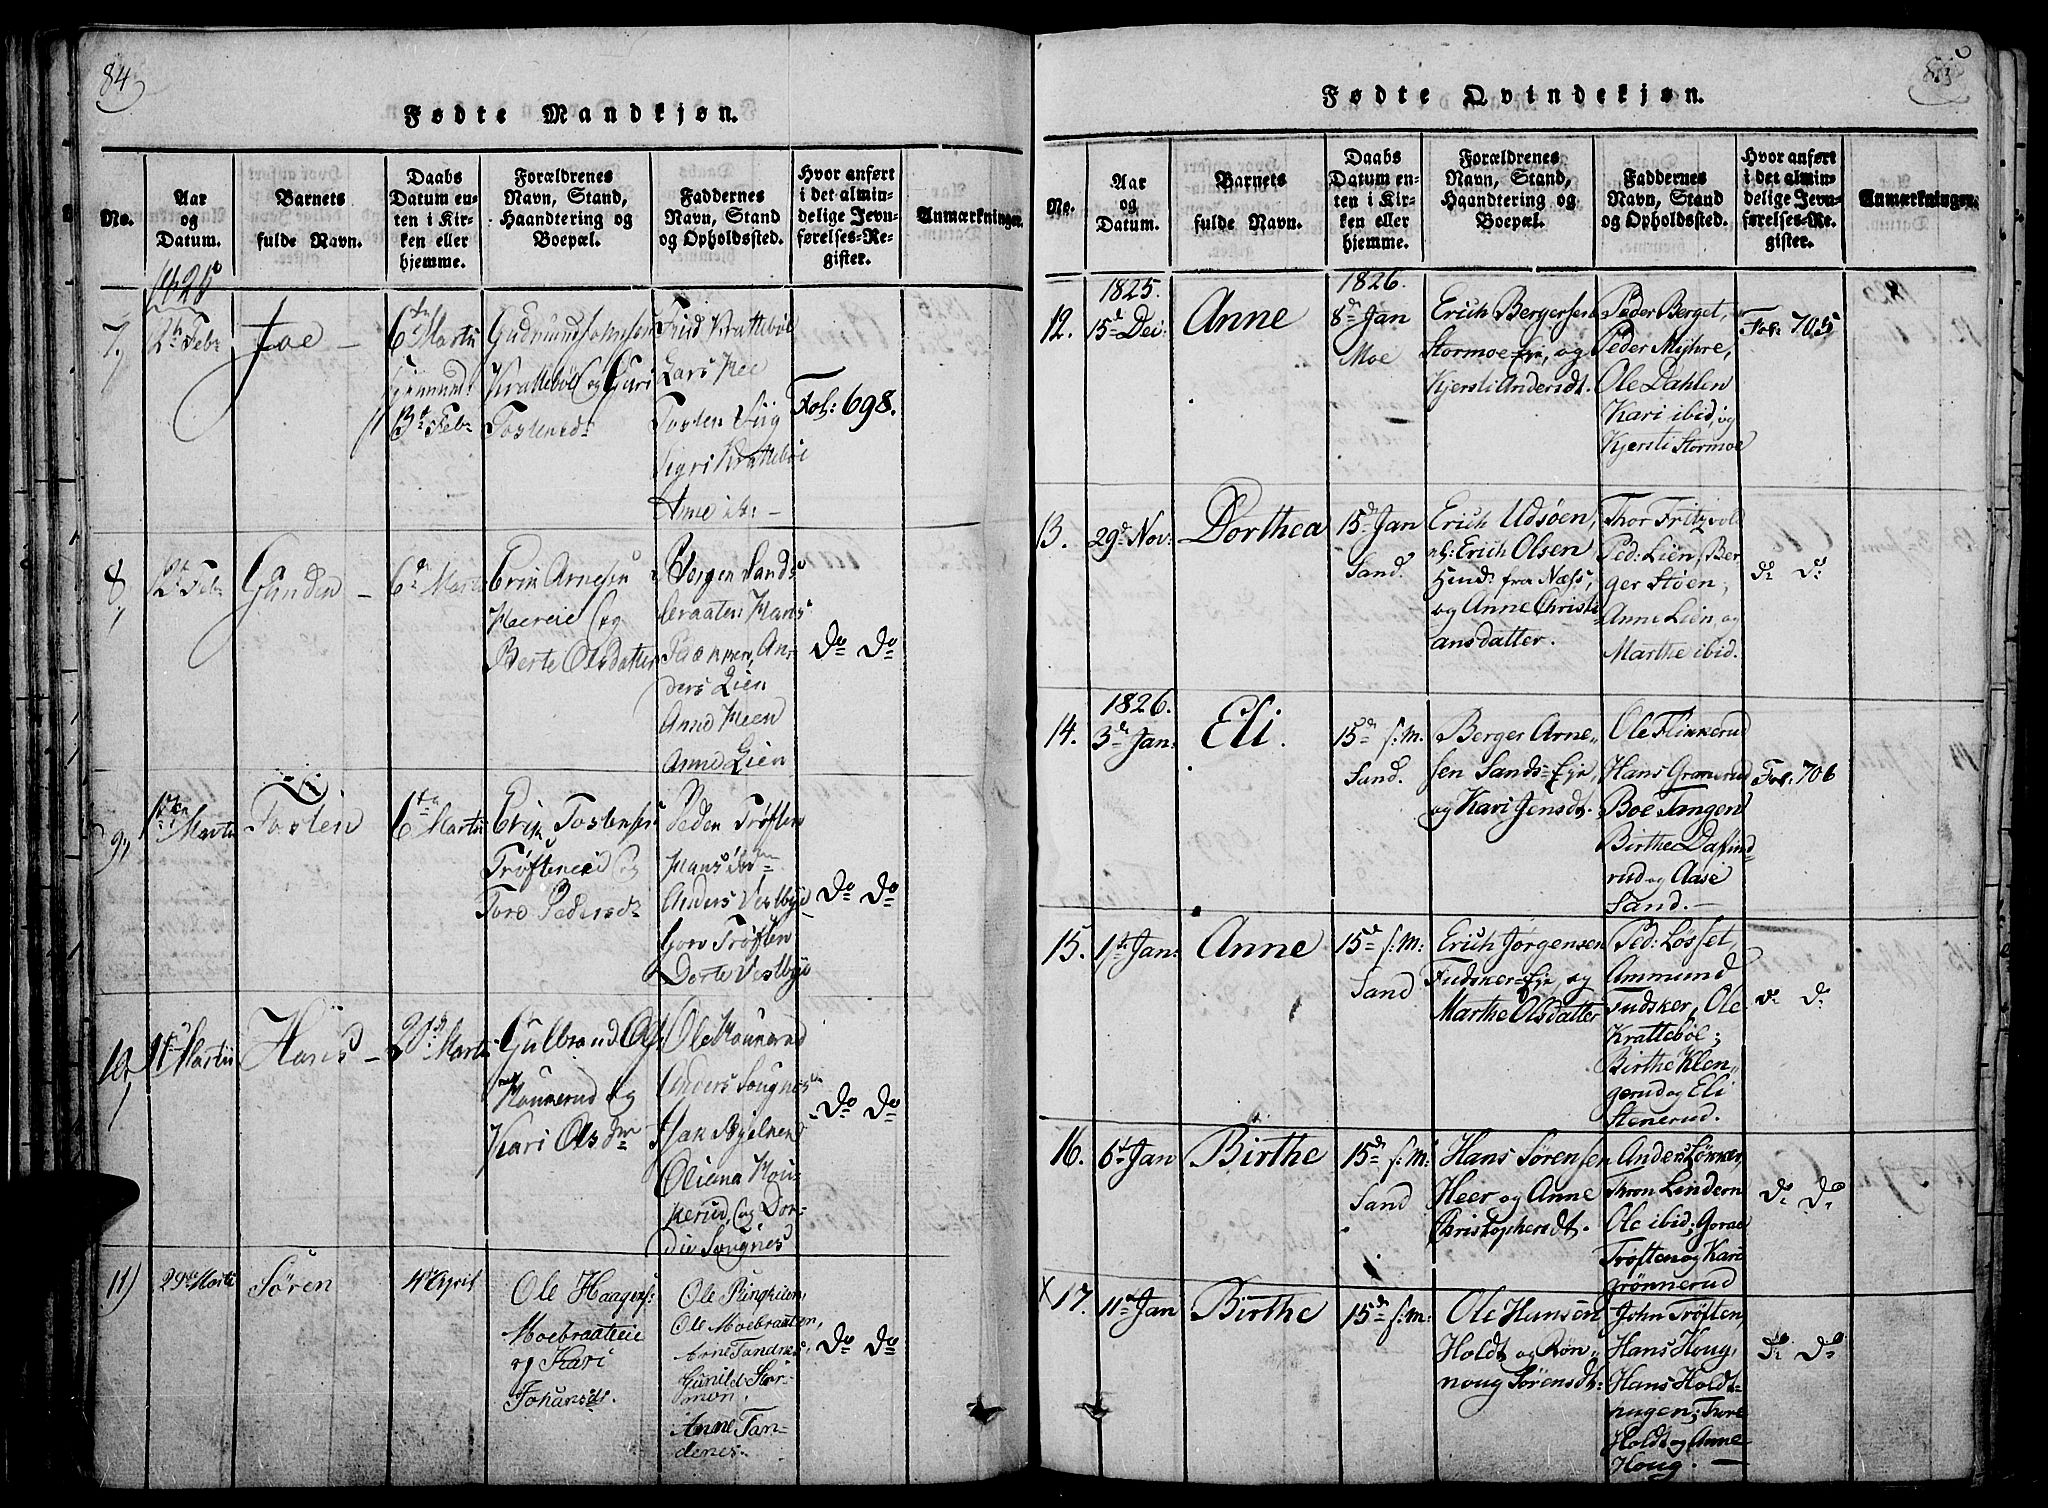 84
Fødte Mandkjøn.
No.
Aar
og
Datum.
Barnets
fulde Navn.
Daabs
Datum en-
ten i Kir-
ken eller
hjemme.
Forældrenes
Navn, Stand,
Haandtering og
Boepæl.
Faddernes
Navn, Stand
og Opholdssted.
Hvor anført
i det almin-
delige Jevn-
førelses-Re-
gister.
Anmærkninger.
1826
7,
Febr
6 Martii
13 Febr
Krattebøe og Guri
Tostensdr
Krattebøe
Lars
Tosten
Sigri Krattebøe
Anne
Fol: 698.
8,
Febr
Gunden
6 Martii
Erik Arnesen
og
Berte Olsdatter
Jørgen Sands
braaten, Hans
An-
ders Lien
Anne
Anne Lien
Do Do
9,
Martii
Tosten
6 Martii
Erik Tostensen
Trøfteneie og
Tore Pedersdr
Peder Trøften
Hans
Anders Vestbye
Trøften
Dorte Vestbye
Do Do
10,
Martii
Hans
Martii
Gulbrand Ols
og
Kari Olsdr
Ole
Anders Sougnes
Isak
Oliana
kerud, og Dor-
die Sougnes
Do Do
11)
29de Martii
Søren
4de April
Ole Haagens:
Moebraateeie
og Kari
Johansdr.
Ole Ringheien,
Ole Moebraaten,
Arne Tandnæs
Gunild Stor-
moen,
Anne Tan-
denes.
Do Do
85
Fødte Qvindekjøn.
No.
Aar
og
Datum.
Barnets
fulde Navn.
Daabs
Datum en-
ten i Kir-
ken eller
hjemme.
Forældrenes
Navn, Stand,
Haandtering og
Boepæl.
Faddernes
Navn, Stand
og Opholdssted.
Hvor anført
i det almin-
delige Jevn-
førelses-Re-
gister.
Anmærkninger.
12.
1825.
15d Dec:
Anne
1826.
8d Jan
Moe
Erich Bergersen
Stormoe Eje, og
Kjersti Andersdt.
Peder Berget,
Peder Myhre,
Ole Dahlen
Kari ibid, og
Kjersti Stormoe
Fol: 705
13.
29d Nov:
Dorthea
15d Jan
Sand.
Erich Udsøen,
Erich Olsen
Hind fra Næss,
og Anne Christi
ansdatter.
Thor Fritzvold
Ped: Lien, Ber
ger Støen,
Anne Lien, og
Marthe ibid.
Do Do
14.
1826.
3de Jan:
Eli.
15d s: M.
Sand.
Berger Arne-
sen Sands-Eje,
og Kari Jensdt.
Ole Flinkerud
Hans Granerud
Boe Tangen
Birthe Dafind-
rud og Aase
Sand.-
Fol: 706
15.
1ste Jan:
Anne
15d s: M:
Sand
Erich Jørgensen
Fudsker-Eje, og
Marthe Olsdatter
Ped: Løsset,
Ammund
Fudsker, Ole
Krattebøe;
Birthe Klen-
gerud og Eli
Stenerud.
Do Do
16.
6t Jan
Birthe
15d s: M:
Sand
Hans Sørensen
Heer og Anne
Christophersdt.
Anders Løkker,
Thron Lindern
Ole ibid; Goroe
Trøften og Kari
Grønnerud
Do Do
X 17.
11d Jan
Birthe
15d s: M:
Ole Hansen
Holdt og Røn-
noug Sørensdt:
John Trøften,
Hans Houg,
Hans Holdt-
hagen; Thore
Holdt og Anne
Houg. -
Do Do